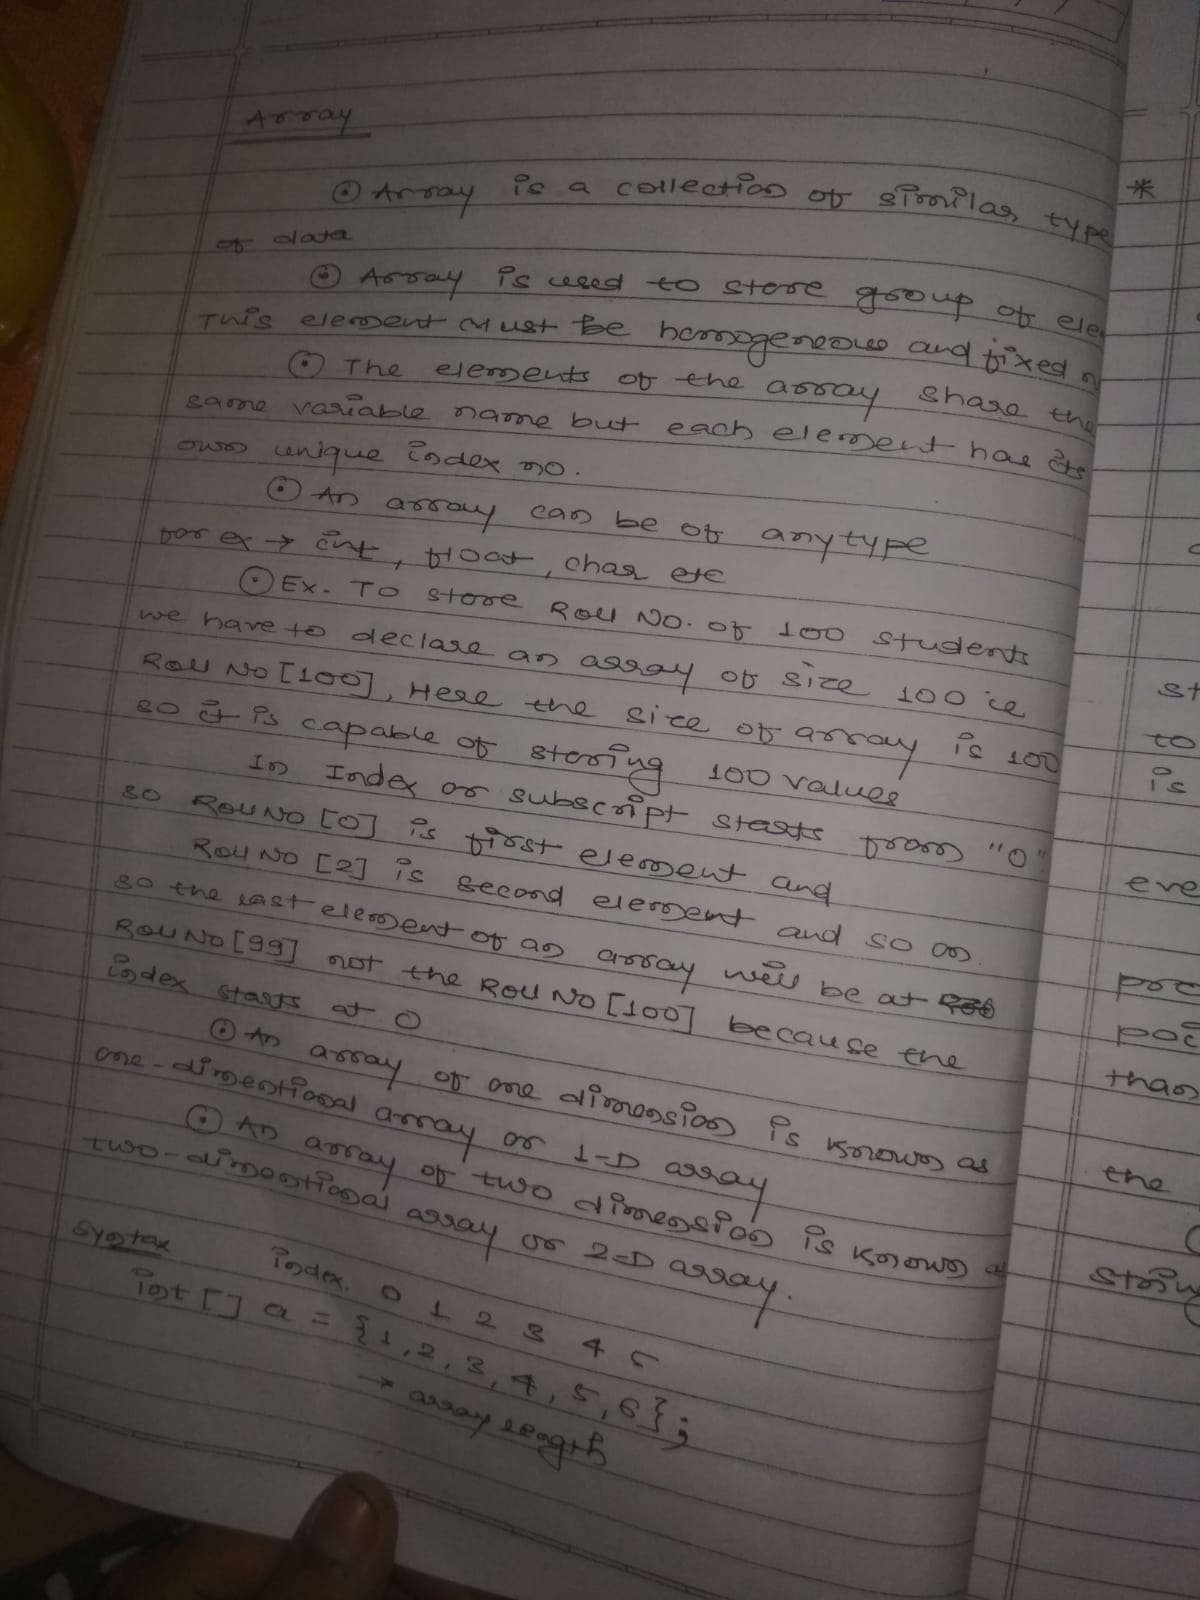 Array
⊙ Array is a collection of similar type
of data
⊙ Array is used to store group of ele
This element Must be homogeneous and fixed
⊙ The elements of the array share the
same variable name but each element has its
own unique index no.
⊙ An array can be of any type
for ex → int, float, char etc
⊙ Ex. To store Roll No. of 100 students
we have to declare an array of size 100 ie
Roll No [100], Here the size of array is 100
so it is capable of storing 100 values
In Index or subscript starts from "0"
so Roll No [0] is first element and
Roll No [2] is second element and so on.
so the last element of an array will be at
Roll No [99] not the Roll No [100] because the
index starts at 0
⊙ An array of one dimension is known as
one-dimentional array or 1-D array
⊙ An array of two dimension is known a
two-dimentional array or 2-D array.
Syntax index. 0 1 2 3 4 5
int [] a = {1, 2, 3, 4, 5, 6};
→ array length
*
st
to
is
eve
pre
poi
than
the
string